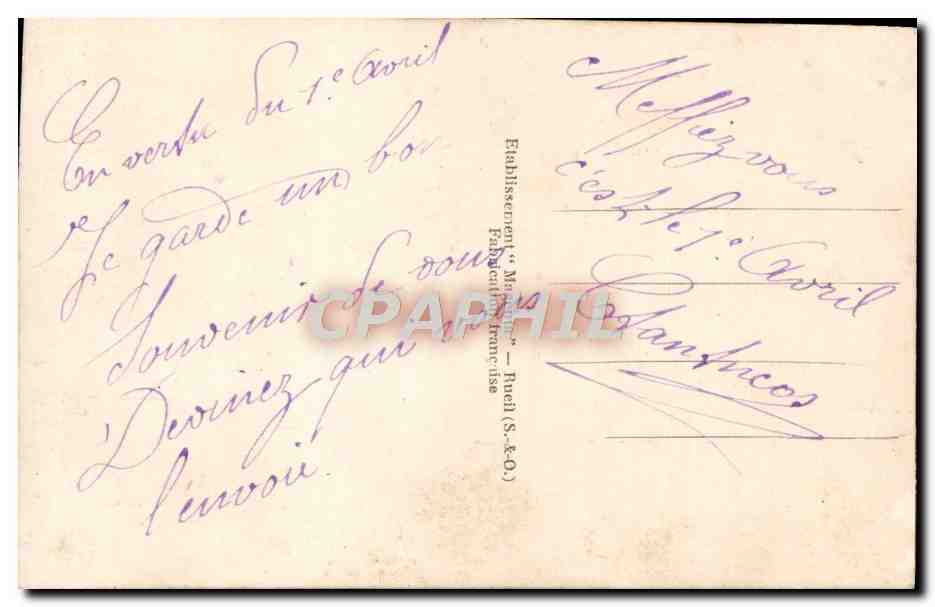 En vertu du 1e Avril
Je garde un bon
Souvenir de vous
Devinez qui vous
l'envoie.
Meffiez vous
c'est le 1e Avril
Etablissement " — Rueil (S.-&-O.)
Fabrication française
CPAPHIL